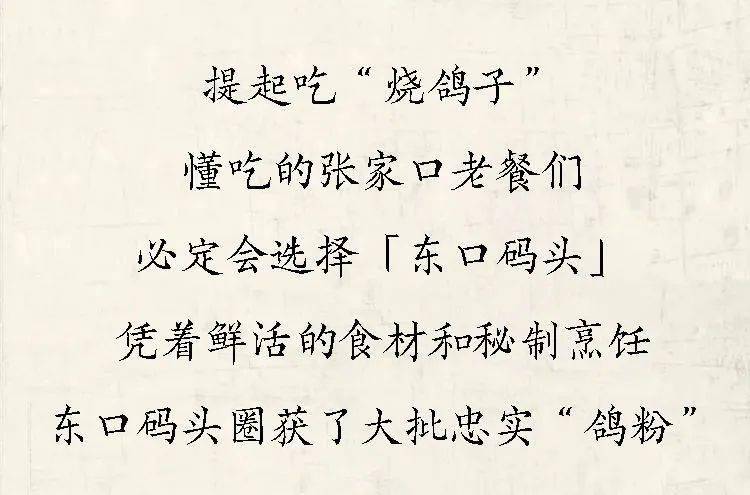 提起吃“烧鸽子”
懂吃的张家口老餐们
必定会选择「东口码头」
凭着鲜活的食材和秘制烹饪
东口码头圈获了大批忠实“鸽粉”